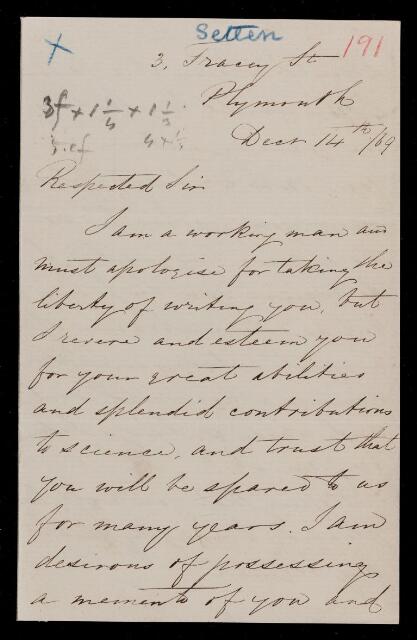 Setters 191
3, Tracey St
Plymouth
3f x 1 1/4 x 1 1/3
Decr 14th/69
Respected Sir
I am a working man and
must apologise for taking the
liberty of writing you, but
I revere and esteem you
for your great abilities
and splendid contributions
to science, and trust that
you will be spared to us
for many years. I am
desirous of possessing
a memento of you and